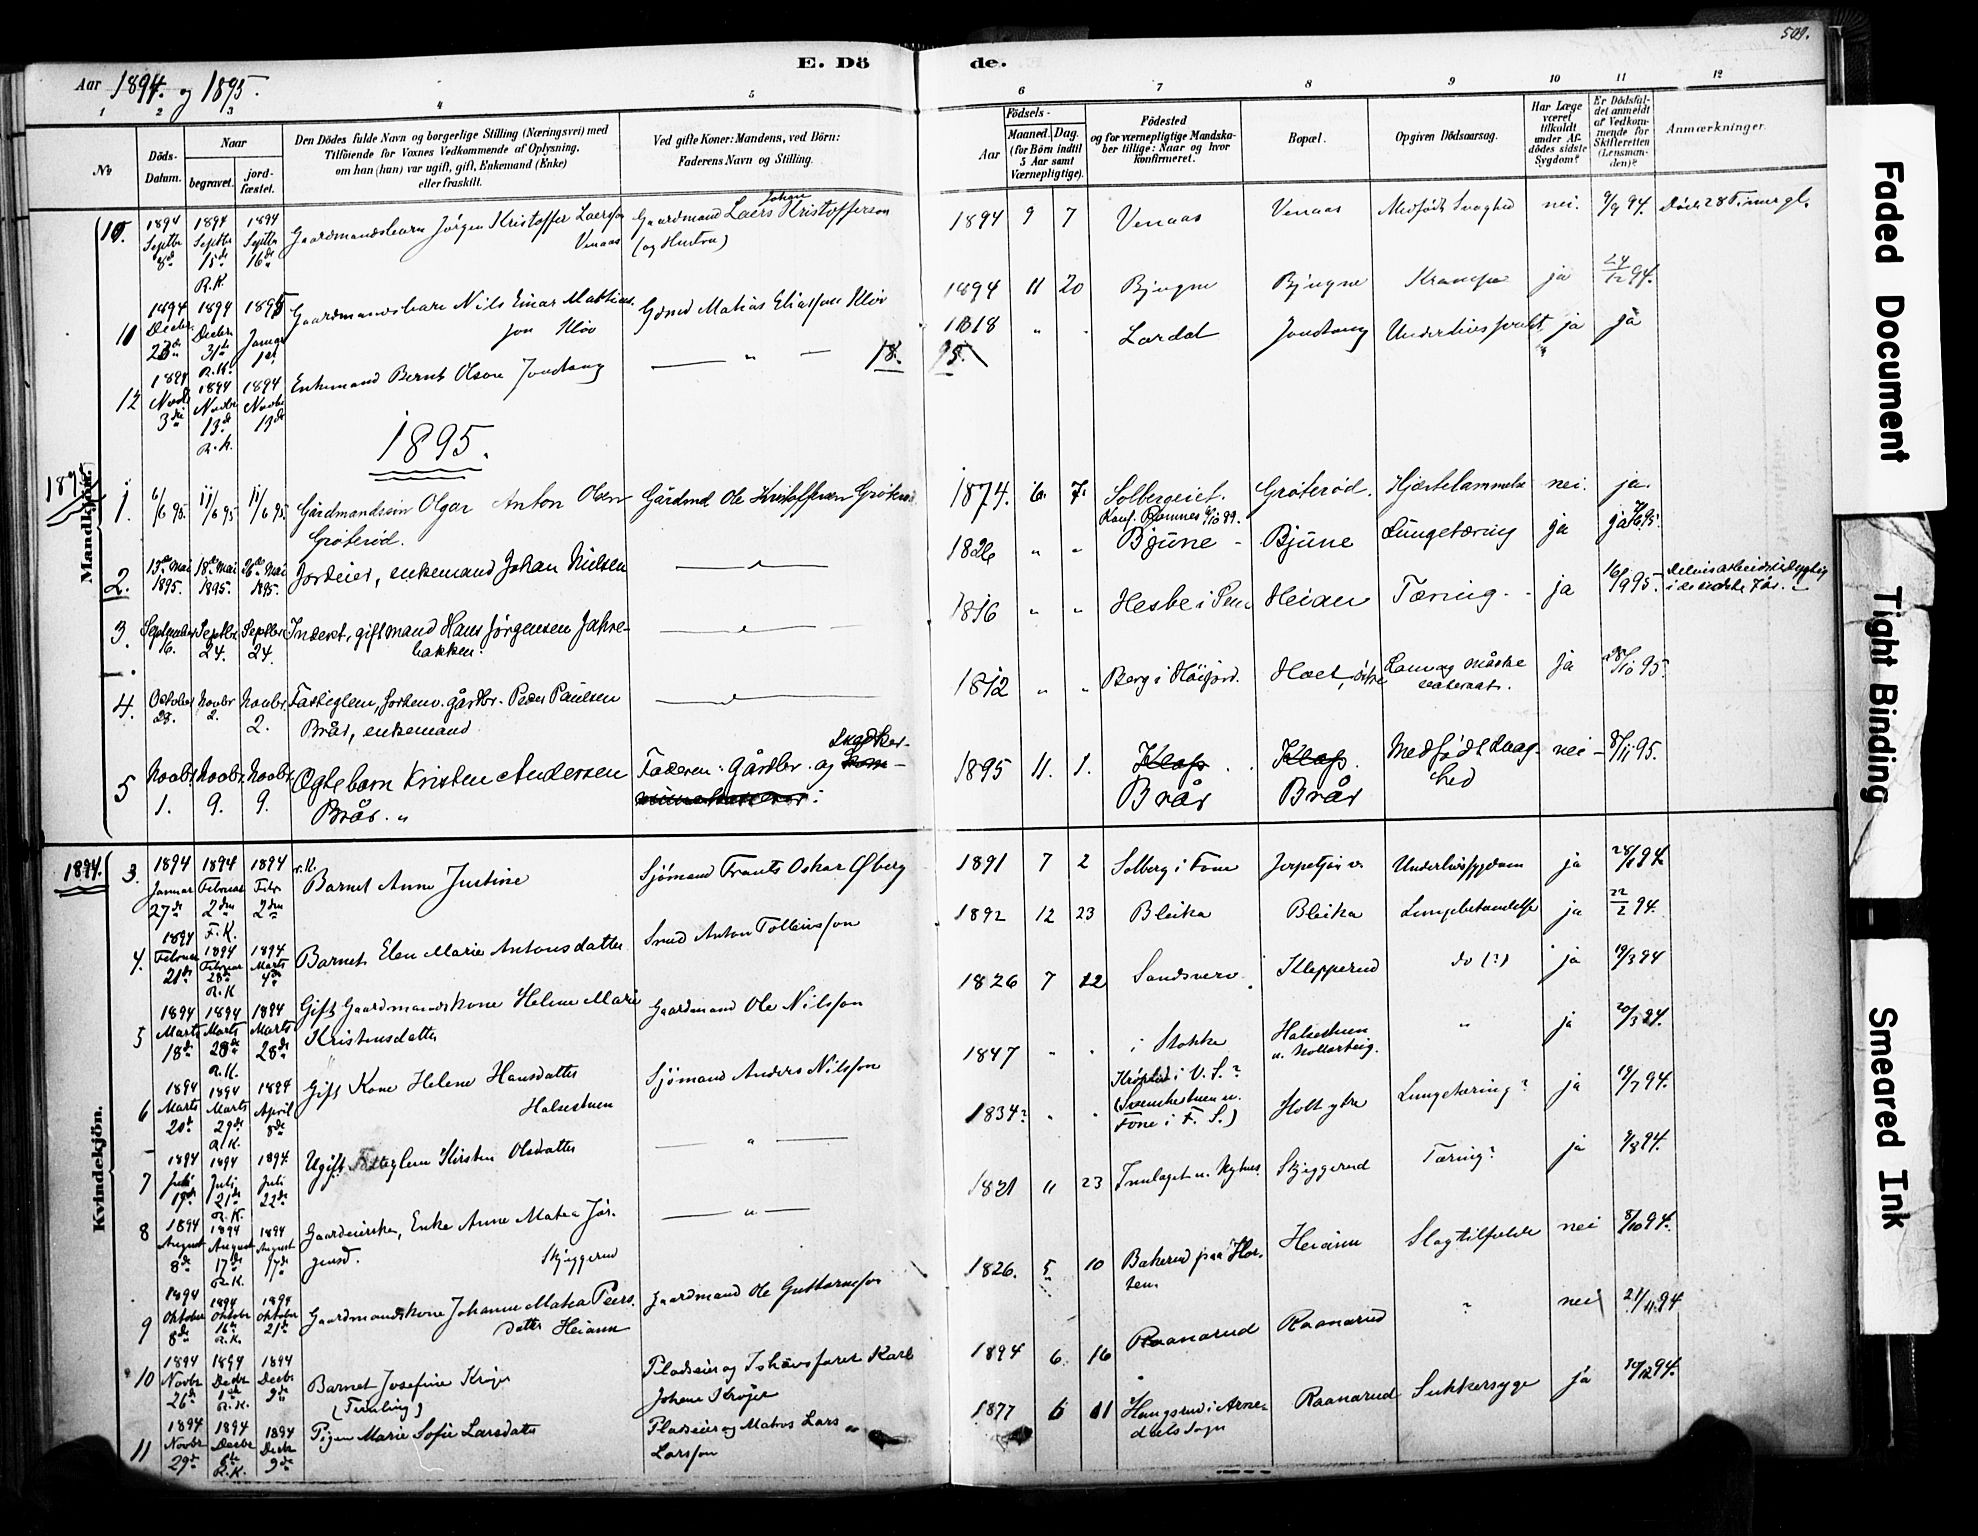 509.
E. Dö de.
Aar 1894. og 1895.
1 2 3 4 5 6 7 8 9 10 11 12
No
Döds-Datum.
Naar
begravet.
jord-fæstet.
Den Dödes fulde Navn og borgerlige Stilling (Næringsvei) med
Tilföiende for Voxnes Vedkommende af Oplysning,
om han (hun) var ugift, gift, Enkemand (Enke)
eller fraskilt.
Ved gifte Koner: Mandens, ved Börn:
Faderens Navn og Stilling.
Födsels-
Aar
Maaned. Dag.
(for Börn indtil
5 Aar samt
Værnepligtige).
Födested
og for værnepligtige Mandska-
ber tillige: Naar og hvor
konfirmeret.
Bopæl.
Opgiven Dödsaarsag.
Har Læge
været
tilkaldt
under Af-
dödes sidste
Sygdom?
Er Dödsfal-
det anmeldt
af Vedkom-
mende for
Skifteretten
(Lensman-
den)?
Anmærkninger.
Mandkjön.
10. 1894 Septbr 8de 1894 Septbr 15de R.K. 1894 Septbr 16de
Gaardmandsbarn Jörgen Kristoffer Laersson Venaas
Gaardmand Laers Johan Kristofferson (og Hustru)
1894 9 7 Venaas Venaas Medfödt Svaghed nei. 94.
11 1894 Decbr 1894 Decbr 31te R.K. 1895 Januar 1ste
Gaardmandsbarn Nils Einar Mathias- son Klöv
Gdmd Matias Eliasson Klöv
1894 11 20 Bjugne Bjugne Krampe ja 94.
12 1894 Novbr 3die 1894 Novbr 13de R.K. 1894 Novbr 13de
Enkemand Bernt Olson Jondtang
— " —
1818 " Lardal Jondtang ja ja
18. 95.
1895.
1895
1. 6/6 95. 11/6 95 11/6 95.
Gårdmandssön Olgar Anton Olsen Gröteröd.
Gårdmd Ole Kristoffersen Gröteröd
1874. 6. 7. Solbergeiet. Konf. Ramnes 6/10 89. Gröteröd. Hjertelammelse nei. ja.
2. 13de Mai 1895. 18de Mai 1895. 26de Mai 1895.
Jordeier, enkemand Johan Nielsen
1826 " " Bjüne Bjüne Lungetæring ja ja
3. September 16. Septbr. 24. Septbr. 24.
Inderst, gift mand Hans Jörgensen Jahre- bakken.
1816 " " Hesbe i Heian Tæring. ja 16/9 95.
i de sidste 7 år.
4. October 28. Novbr 2. Novbr. 2.
Fattiglem, forhenv. gårdbr. Peder Paulsen Brår, enkemand
1812 " " Berg i Höijord. Hoet, östre Lam og måske ja 28/10 95.
5 Novbr. 1. Novbr. 9. Novbr. 9.
Ægtebarn Kristen Andersen Brår. "
Faderen: Gårdbr. og
1895 11. 1. Klop. Brår Klop. Brår Medfödt Svag- hed nei 8/11 95.
Kvindekjön.
1894.
3. 1894 Januar 27de 1894 Februar 2den F.K. 1894 Febr 2den
Barnet Anne Justine
Sjömand Frants Oskar Öberg
1891 7 2 Solberg i Fone Underlivssygdom ja 28/1 94
4. 1894 Februar 21de 1894 Februar 28de R.K 1894 Marts 4de
Barnet Elen Marie Antonsdatter
Smed Anton Tollefsson
1892 12 23 Bleika Bleika Lungebetændelse ja 22/2 94.
5 1894 Marts 18de 1894 Marts 28de R.K. 1894 Marts 28de
Gift Gaardmandskone Helene Marie Kristensdatter
Gaardmand Ole Nilsson
1826 7 12 Sandsverv Klepperud do (?) ja 19/3 94
6 1894 Marts 20de 1894 Marts 29de R.K. 1894 April 8de
Gift Kone Helene Hansdatter Halsestuen
Sjömand Anders Nilsson
1847 " i Stokke Halsestuen " ja 20/3 94.
7 1894 Juli 17de 1894 Juli 21de R.K. 1894 Juli 22de
Ugift Fattiglem Kirsten Olsdatter
— " —
1834? " i V. S.? (Svenskestuen u. Fone i F. S.) Holt ytre Lungetæring? ja 19/7 94.
8 1894 August 8de 1894 August 17de R.K. 1894 August 17de
Gaardeierske, Enke Anne Matea Jör- gensd. Skjeggerud
— " —
1821 11 23 Skjeggerud Tæring? ja 94.
9 1894 Oktober 8de 1894 Oktober 16de R.K. 1894 Oktober 21de
Gaardmandskone Johanne Matea Peers- datter Heiann
Gaardmand Ole Guttormsson
1826. 5 10 Bakerud paa Hor- ten. Heiann Slagtilfælde nei 8/10 94.
10 1894 Novbr 26de 1894 Decbr 1ste R.K. 1894 Decbr 9de
Barnet Josefine Kröjer (Tvilling)
Pladseier og Ishavsfarer Karl Johan Kröjer
1894 6 16 Raanarud Raanarud ? nei 94
11 1894 Novbr 29de 1894 Decbr 5te R.K. 1894 Decbr 9de
Pigen Marie Sofie Larsdatter
Pladseier og Matros Lars Larsson
1877 6 11 Haugsrud i Arne- dals Sogn Raanarud Sukkersyge ja 94.
Faded Document
Tight Binding
Smeared Ink